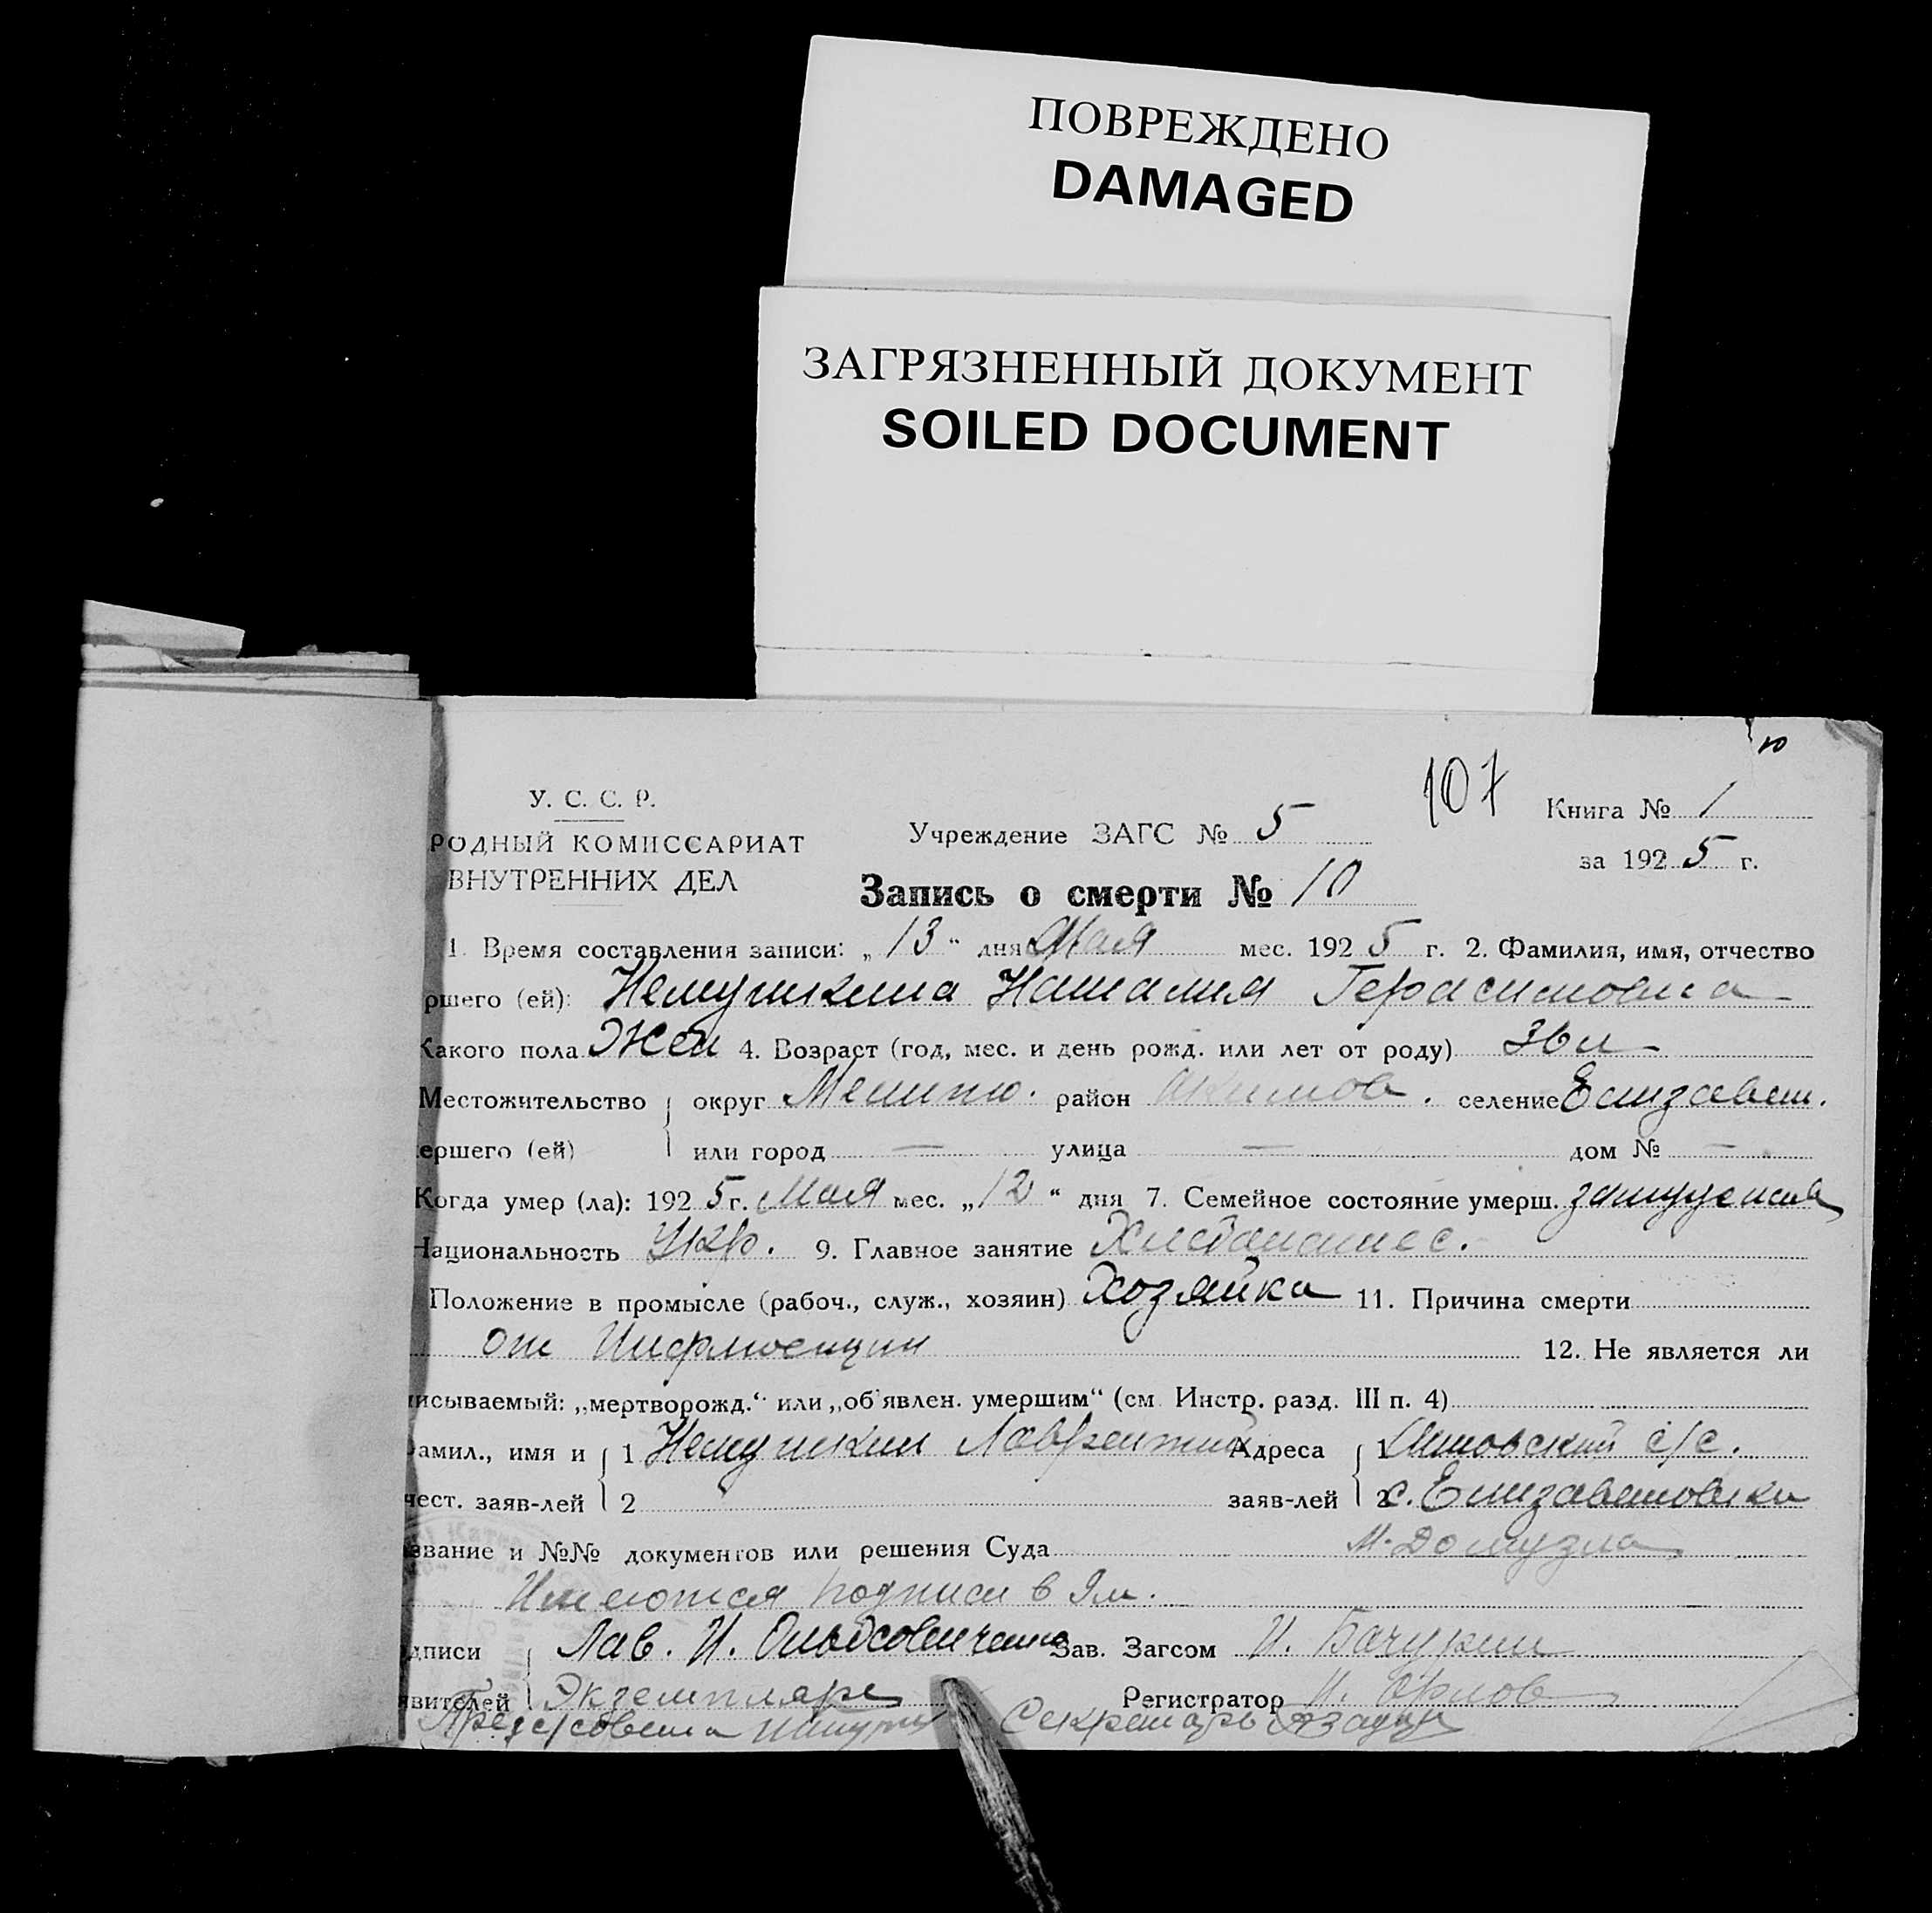 ПОВРЕЖДЕНО
DAMAGED
ЗАГРЯЗНЕННЫЙ ДОКУМЕНТ
SOILED DOCUMENT
10
107
У. С. С. Р.
РОДНЫЙ КОМИССАРИАТ
ВНУТРЕННИХ ДЕЛ
Учреждение ЗАГС № 5
Книга № 1
за 1925 г.
Запись о смерти № 10
1. Время составления записи: „13“ дня Мая мес. 1925 г. 2. Фамилия, имя, отчество
ршего (ей): Наталия Герасимовна
Какого пола Жен 4. Возраст (год, мес. и день рожд. или лет от роду) 36 л
Местожительство округ Мелитю. район Акимов. селение Елизавет.
ершего (ей) или город — улица — дом № —
Когда умер (ла): 1925 г. Мая мес. „12“ дня 7. Семейное состояние умерш. замужняя
Национальность Укр. 9. Главное занятие
Положение в промысле (рабоч., служ., хозяин) Хозяйка 11. Причина смерти
от Инфлюенции 12. Не является ли
исываемый: „мертворожд.“ или „об'явлен. умершим“ (см. Инстр. разд. III п. 4)
амил., имя и 1 Лаврентий Адреса 1 с/с.
чест. заяв-лей 2 заяв-лей 2 с. Елизаветовки
звание и №№ документов или решения Суда
Имеются подписи в
дписи Лав. И. Зав. Загсом И. Бачурин
явителей Экземпляре Регистратор И. Орлов
Секретарь